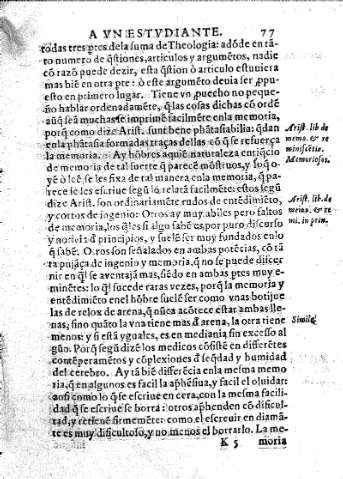 A VN ESTVDIANTE. 77
todas tres p̄tes dela suma de Theologia: adõde en tã-
to numero de q̃stiones, articulos y argumẽtos, nadie
cõ razõ puede dezir, esta q̃stiõ ò articulo estuuiera
mas biẽ en otra p̄te: ò este argumẽto deuia ser, pu-
esto en primero lugar. Tiene vn, puecho no peque-
ño hablar ordenadamẽte, q̃ las cosas dichas cõ ordẽ
aũq̃ seã muchas se imprimẽ facilmẽte en la memoria,
porq̃ como dize Arist. sunt bene phãtasiabilia: q̃dan
en la phãtasia formadas traças dellas cõ q̃ se refuerça
la memoria. Ay hõbres a quiẽ naturaleza enriq̃cio
de memoria de tal suerte q̃ parecẽ mõstruos, y lo q̃ o-
yẽ ò leẽ, se les fixa de tal manera en la memoria, q̃ pa-
rece le les escriue segũ lo relatã facilmẽte: estos segũ
dize Arist. son ordinariamẽte rudos de entẽdimiẽto,
y cortos de ingenio: Otros ay muy abiles pero faltos
de memoria, los q̃les si algo sabẽ es por puro discurso
y noticia d̃ principios, y suelẽ ser muy fundados en lo
q̃ sabẽ. Otros son señalados en ambas potẽcias, cõ tã
ta pujãça de ingenio y memoria, q̃ no se puede discer
nir en q̃l se auentajã mas, siẽdo en ambas p̄tes muy e-
minẽtes: lo q̃l sucede raras vezes, porq̃ la memoria y
entẽdimiẽto en el hõbre suelẽ ser como vnas botijue
las de relox de arena, q̃ nũca acõtece estar ambas lle-
nas, sino quãto la vna tiene mas d̃ arena, la otra tiene
menos: y si está yguales, es en mediania sin excesso al
gũo. Porq̃ segũ dizẽ los medicos cõsistẽ en differẽtes
contẽperamẽtos y cõplexiones d̃ seq̃dad y humidad
del cerebro. Ay tã biẽ differẽcia en la mesma memo
ria, q̃ en algunos es facil la aphẽsiua, y facil el oluidar:
ansi como lo q̃ se escriue en cera, con la mesma facili-
dad q̃ se escriue se borra: otros aphenden cõ dificul-
tad, y retienẽ firmemẽte: como el escreuir en diamã-
te es muy dificultoso, y no menos el borrarlo. La me-
K 5 moria
Arist. lib. de
memo. & re
miniscẽtia.
Memoriosos.
Arist. lib. de
memo. & re
mi. in prin.
Simile.